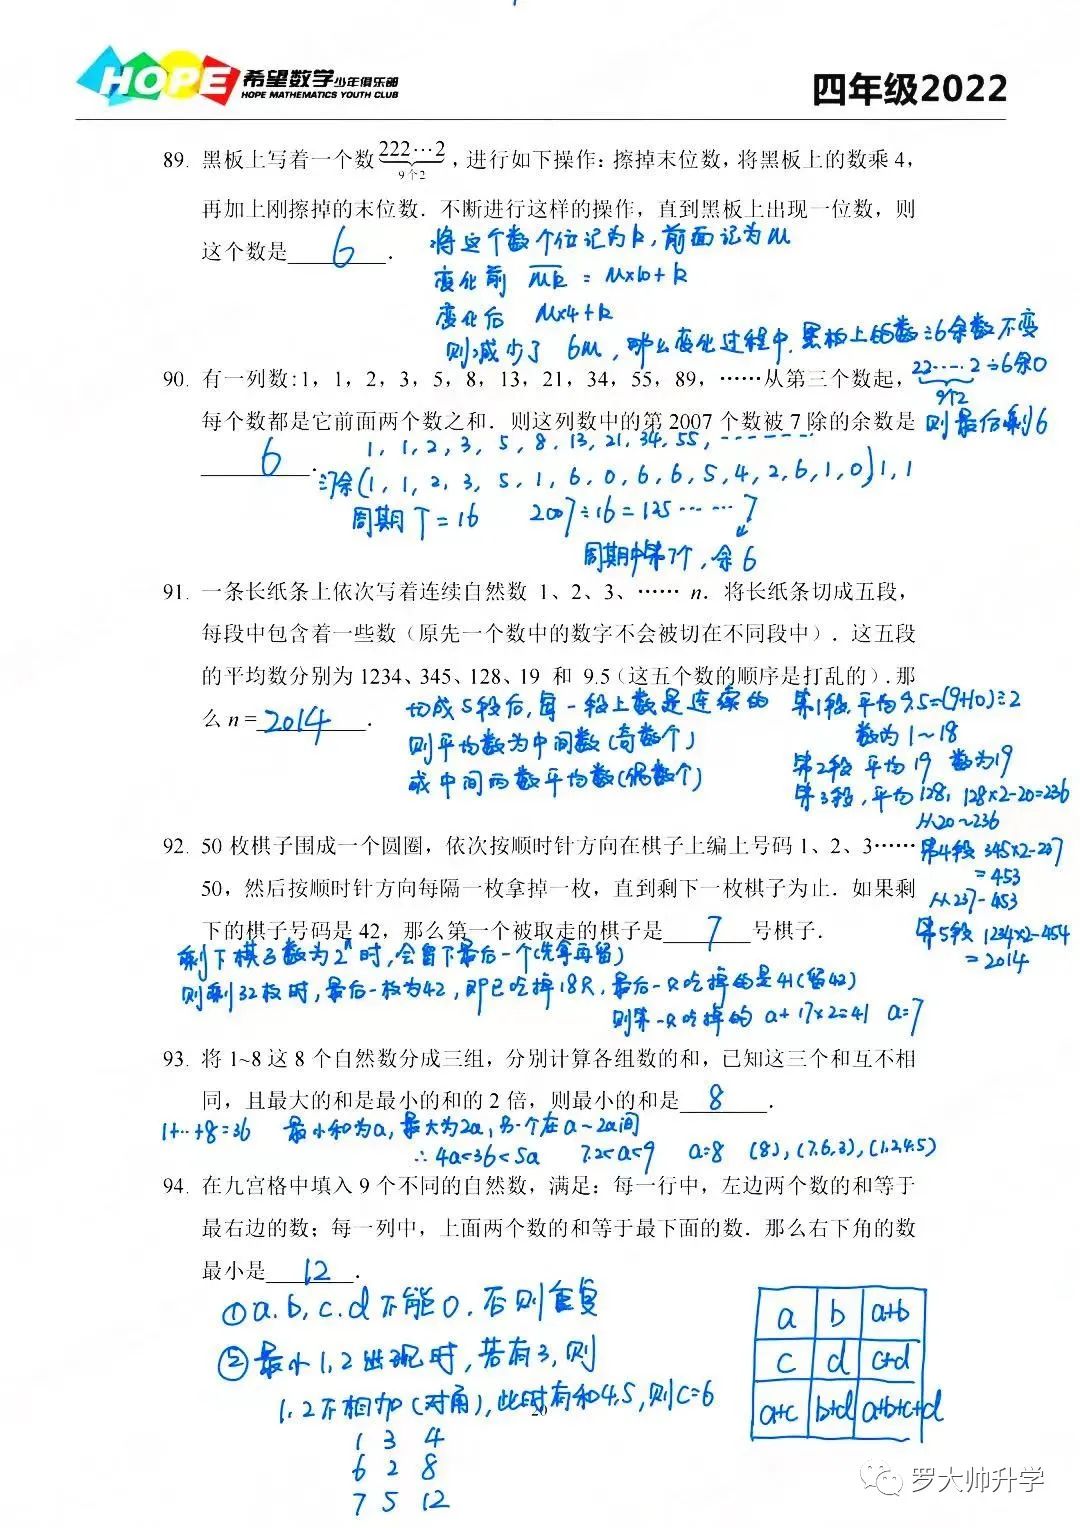 HOPE 希望数学少年俱乐部
HOPE MATHEMATICS YOUTH CLUB
四年级2022
89. 黑板上写着一个数222⋯2，进行如下操作：擦掉末位数，将黑板上的数乘 4，
9个2
再加上刚擦掉的末位数．不断进行这样的操作，直到黑板上出现一位数，则
这个数是 6 ．
将这个数个位记为k，前面记为M
变化前 Mk = M×10+k
变化后 M×4+k
则减少了 6M，那么变化过程中，黑板上的数÷6余数不变
22⋯⋯2÷6余0
9个2
则最后剩6
90. 有一列数：1，1，2，3，5，8，13，21，34，55，89，……从第三个数起，
每个数都是它前面两个数之和．则这列数中的第 2007 个数被 7 除的余数是
6 ．
1, 1, 2, 3, 5, 8, 13, 21, 34, 55, ⋯⋯⋯
÷7余(1, 1, 2, 3, 5, 1, 6, 0, 6, 6, 5, 4, 2, 6, 1, 0) 1, 1
周期T=16 2007÷16=125⋯⋯7
周期中第7个，余6
91. 一条长纸条上依次写着连续自然数 1、2、3、…… n．将长纸条切成五段，
每段中包含着一些数（原先一个数中的数字不会被切在不同段中）．这五段
的平均数分别为 1234、345、128、19 和 9.5（这五个数的顺序是打乱的）.那
么 n = 2014 ．
切成5段后，每一段上数是连续的
则平均数为中间数（奇数个）
或中间两数平均数（偶数个）
第1段，平均9.5=(9+10)÷2
数为1~18
第2段 平均19 数为19
第3段，平均128，128×2-20=236
从20~236
第4段 345×2-237
=453
从237-453
第5段 1234×2-454
=2014
92. 50 枚棋子围成一个圆圈，依次按顺时针方向在棋子上编上号码 1、2、3……
50，然后按顺时针方向每隔一枚拿掉一枚，直到剩下一枚棋子为止．如果剩
下的棋子号码是 42，那么第一个被取走的棋子是 7 号棋子．
剩下棋子数为2ⁿ时，会留下最后一个(先拿再留)
则剩32枚时，最后一枚为42，即已吃掉18只，最后一只吃掉的是41(留42)
则第一只吃掉的 a+17×2=41 a=7
93. 将 1~8 这 8 个自然数分成三组，分别计算各组数的和，已知这三个和互不相
同，且最大的和是最小的和的 2 倍，则最小的和是 8 ．
1+⋯+8=36 最小和为a，最大为2a，另一个在a~2a间
∴ 4a<36<5a 7.2<a<9 a=8 (8), (7,6,3), (1,2,4,5)
94. 在九宫格中填入 9 个不同的自然数，满足：每一行中，左边两个数的和等于
最右边的数；每一列中，上面两个数的和等于最下面的数．那么右下角的数
最小是 12 ．
①a.b,c.d不能0，否则重复
②最小1,2出现时，若有3，则
1,2不相加(对角)，此时有和4,5，则c=6
1 3 4
6 2 8
7 5 12
a b a+b
c d c+d
a+c b+d a+b+c+d
20
罗大帅升学